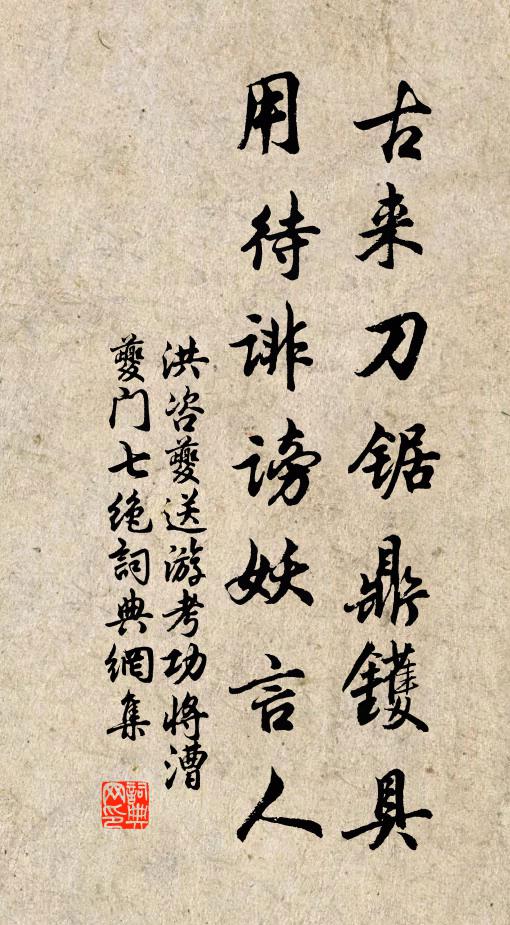 古来刀锯鼎鑊具
用待诽谤妖言人
洪咨夔送游考功将漕
夔门七绝詞典網集
詞典
网印